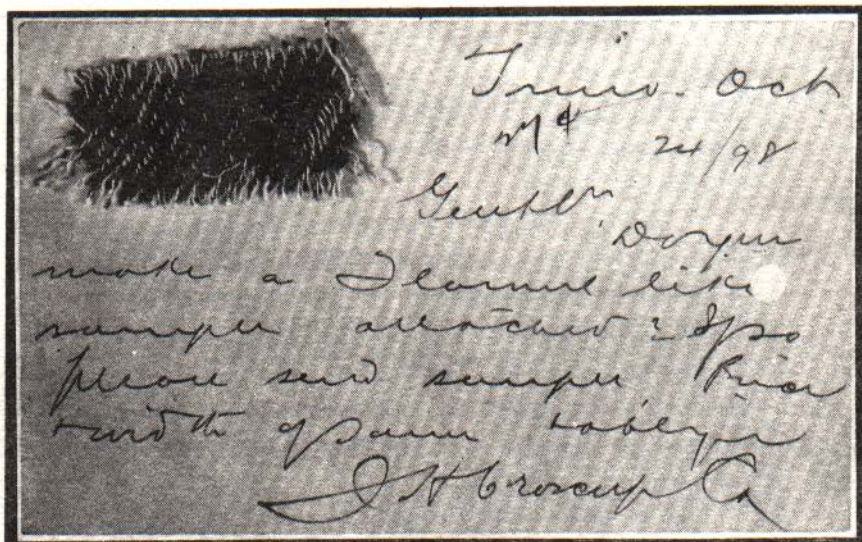 Truro. Oct
24/98
Gentln
Do you
make a Flannel like
sample attached? If so
please send sample, Price
+ width of same + oblige
H Croscup Co